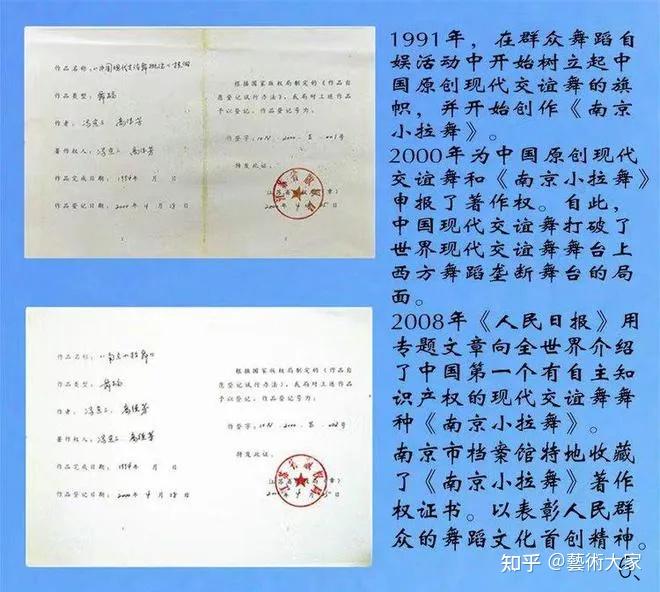 作品名称：《中国现代交谊舞概论》
作品类型：舞蹈
作者：
著作权人：
作品完成日期：1994年 月 日
作品登记日期：2000年4月18日
根据国家版权局制定的《作品自
愿登记试行办法》，我局对上述作品
予以登记，作品登记号为：
作登字：10-N-2000-第-001号
特发此证。
作品名称：《南京小拉舞》
作品类型：舞蹈
作者：
著作权人：
作品完成日期：1994年 月 日
作品登记日期：2000年4月18日
根据国家版权局制定的《作品自
愿登记试行办法》，我局对上述作品
予以登记，作品登记号为：
作登字：10-N-2000-第-002号
特发此证。
1991年，在群众舞蹈自
娱活动中开始树立起中
国原创现代交谊舞的旗
帜，并开始创作《南京
小拉舞》。
2000年为中国原创现代
交谊舞和《南京小拉舞》
申报了著作权。自此，
中国现代交谊舞打破了
世界现代交谊舞舞台上
西方舞蹈垄断舞台的局
面。
2008年《人民日报》用
专题文章向全世界介绍
了中国第一个有自主知
识产权的现代交谊舞舞
种《南京小拉舞》。
南京市档案馆特地收藏
了《南京小拉舞》著作
权证书。以表彰人民群
众的舞蹈文化首创精神。
知乎 @藝術大家